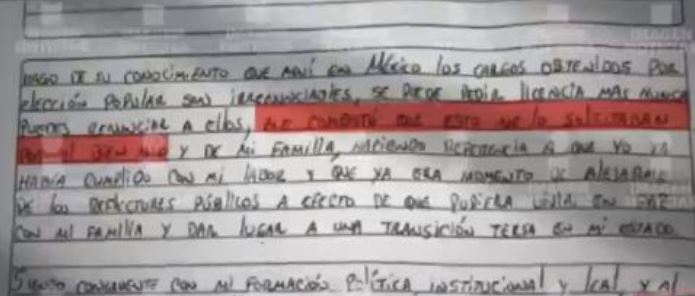 HAGO DE SU CONOCIMIENTO QUE AQUÍ EN MÉXICO LOS CARGOS OBTENIDOS POR
elección POPULAR SON IRRENUNCIABLES, SE PUEDE PEDIR LICENCIA MAS NUNCA
PUEDES RENUNCIAR A Ellos, ME COMENTÓ QUE ESTO ME lo SOLICITABAN
POR EL BIEN MIO Y DE MI FAMILIA, HACIENDO REFERENCIA A QUE YO YA
HABÍA CUMPLIDO CON MI LABOR Y QUE YA ERA MOMENTO DE ALEJARME
DE los REFLECTORES PÚBlICOS A EFECTO DE QUE PUDIERA VIVIR EN PAZ
CON MI FAMILIA Y DAR LUGAR A UNA TRANSICIÓN TERSA EN MI ESTADO.
SIENDO CONGRUENTE CON MI FORMACIÓN POLÍTICA, INSTITUCIONAl Y lEAl, Y Al